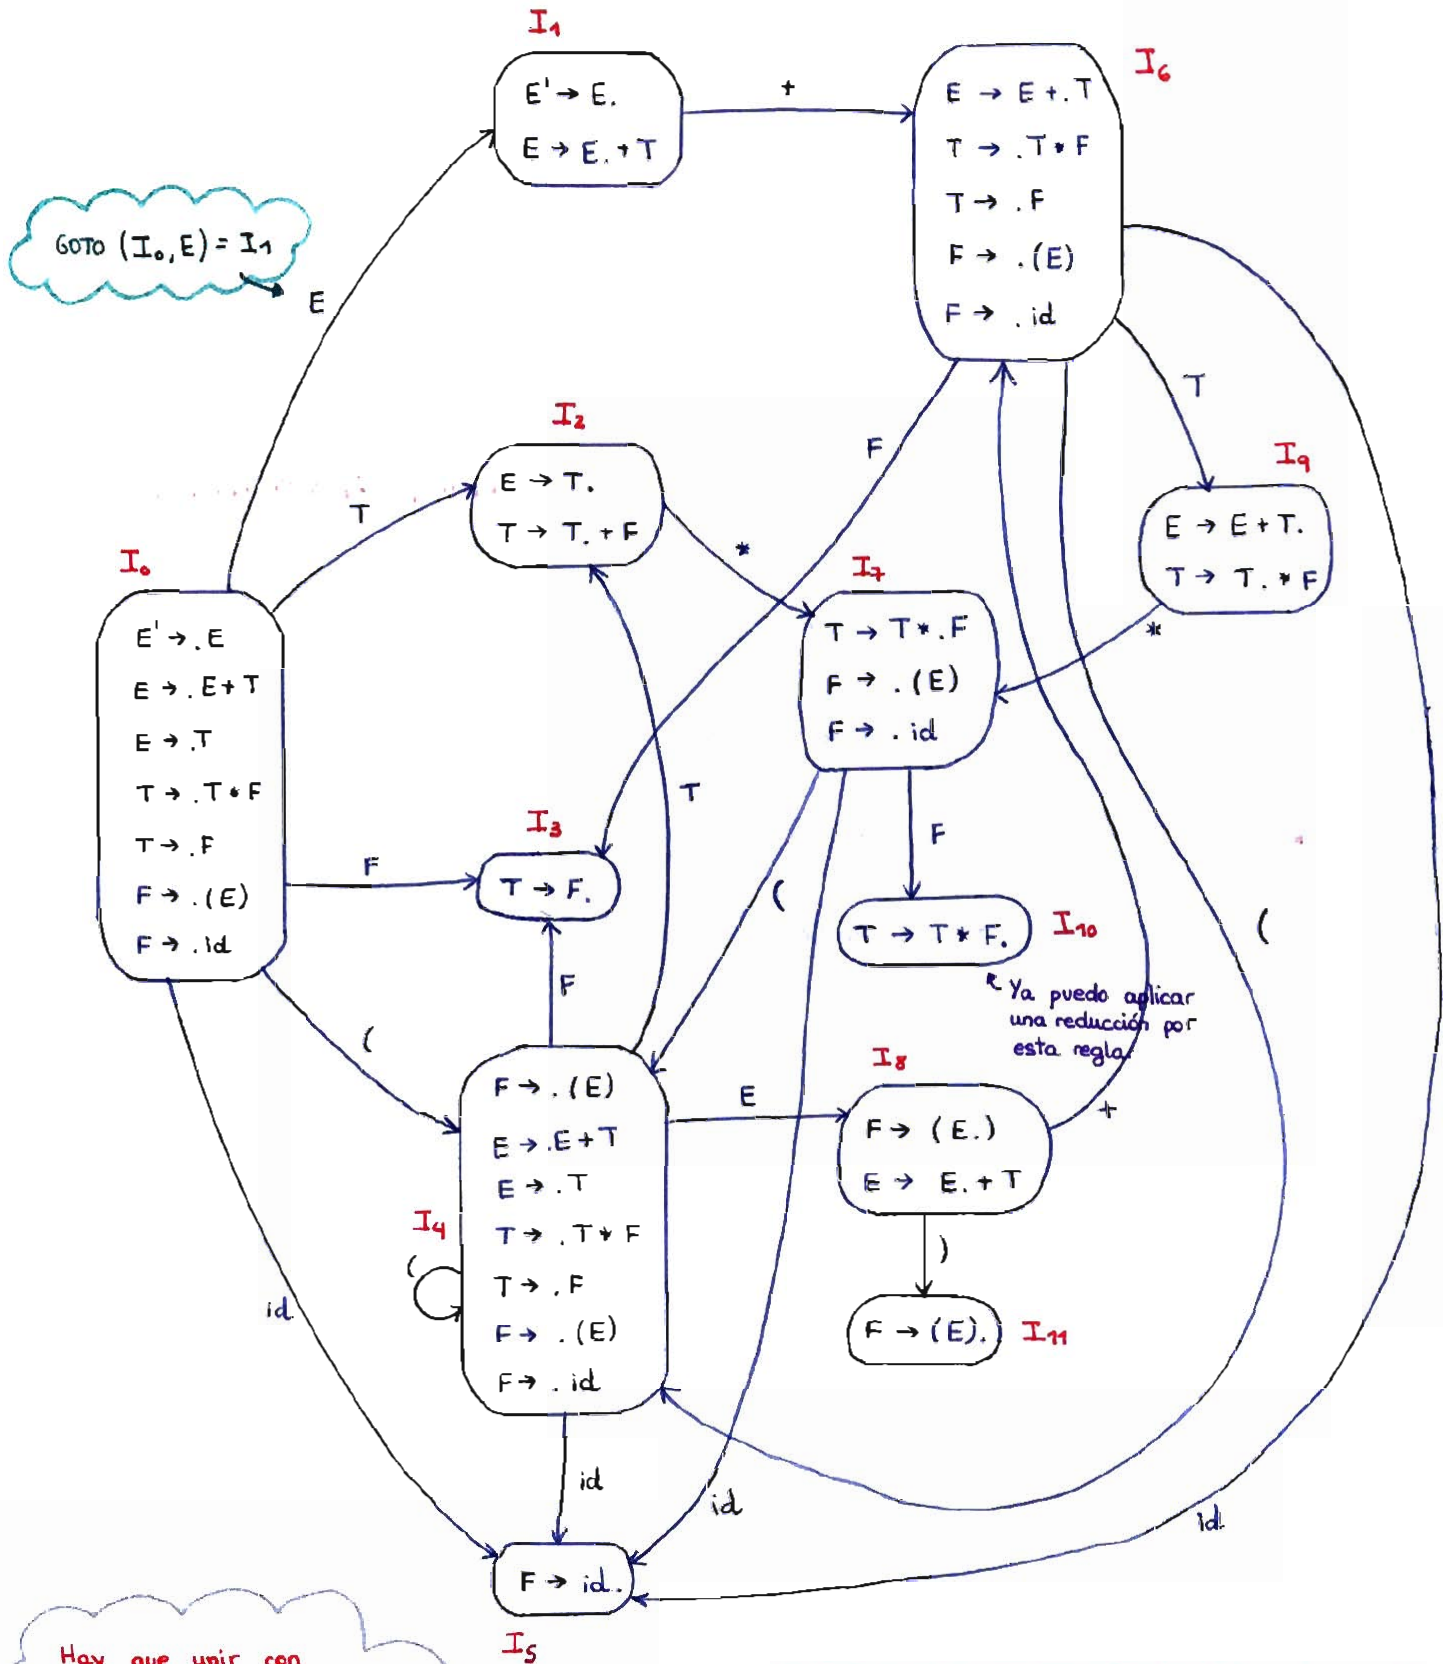 I1
E' → E.
E → E. + T
+
I6
E → E +. T
T → .T * F
T → .F
F → .(E)
F → .id
GOTO (I0, E) = I1
E
T
I2
E → T.
T → T. + F
F
T
I9
E → E + T.
T → T. * F
*
*
I0
E' → .E
E → .E + T
E → .T
T → .T * F
T → .F
F → .(E)
F → .id
I7
T → T * .F
F → .(E)
F → .id
T
F
I3
T → F.
F
(
F
I10
T → T * F.
Ya puedo aplicar
una reducción por
esta regla.
(
(
I4
F → .(E)
E → .E + T
E → .T
T → .T * F
T → .F
F → .(E)
F → .id
(
E
I8
F → (E.)
E → E. + T
+
)
I11
F → (E).
id
id
id
id
F → id.
I5
Hay que unir con